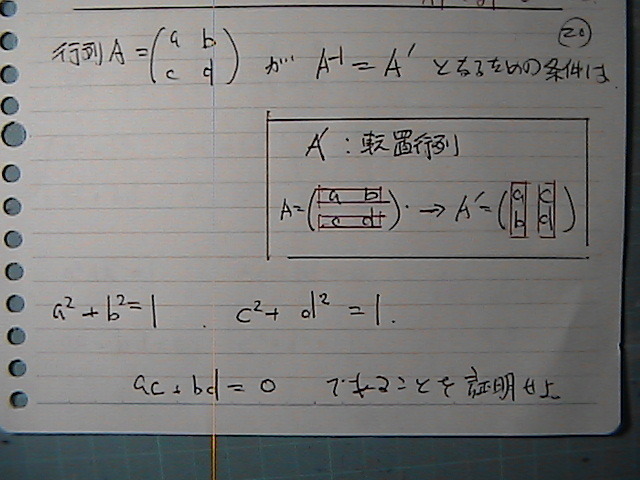 ⑳
行列 A = (a b
c d) が A⁻¹ = A′ となるための条件は
A′ : 転置行列
A = (a b
c d) . → A′ = (a c
b d)
a² + b² = 1 . c² + d² = 1 .
ac + bd = 0 であることを証明せよ